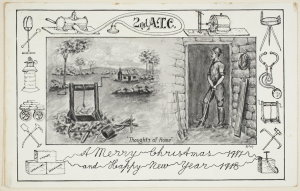 2nd A.T.C.
"Thoughts of Home"
A Merry Christmas 1917
and Happy New Year 1918